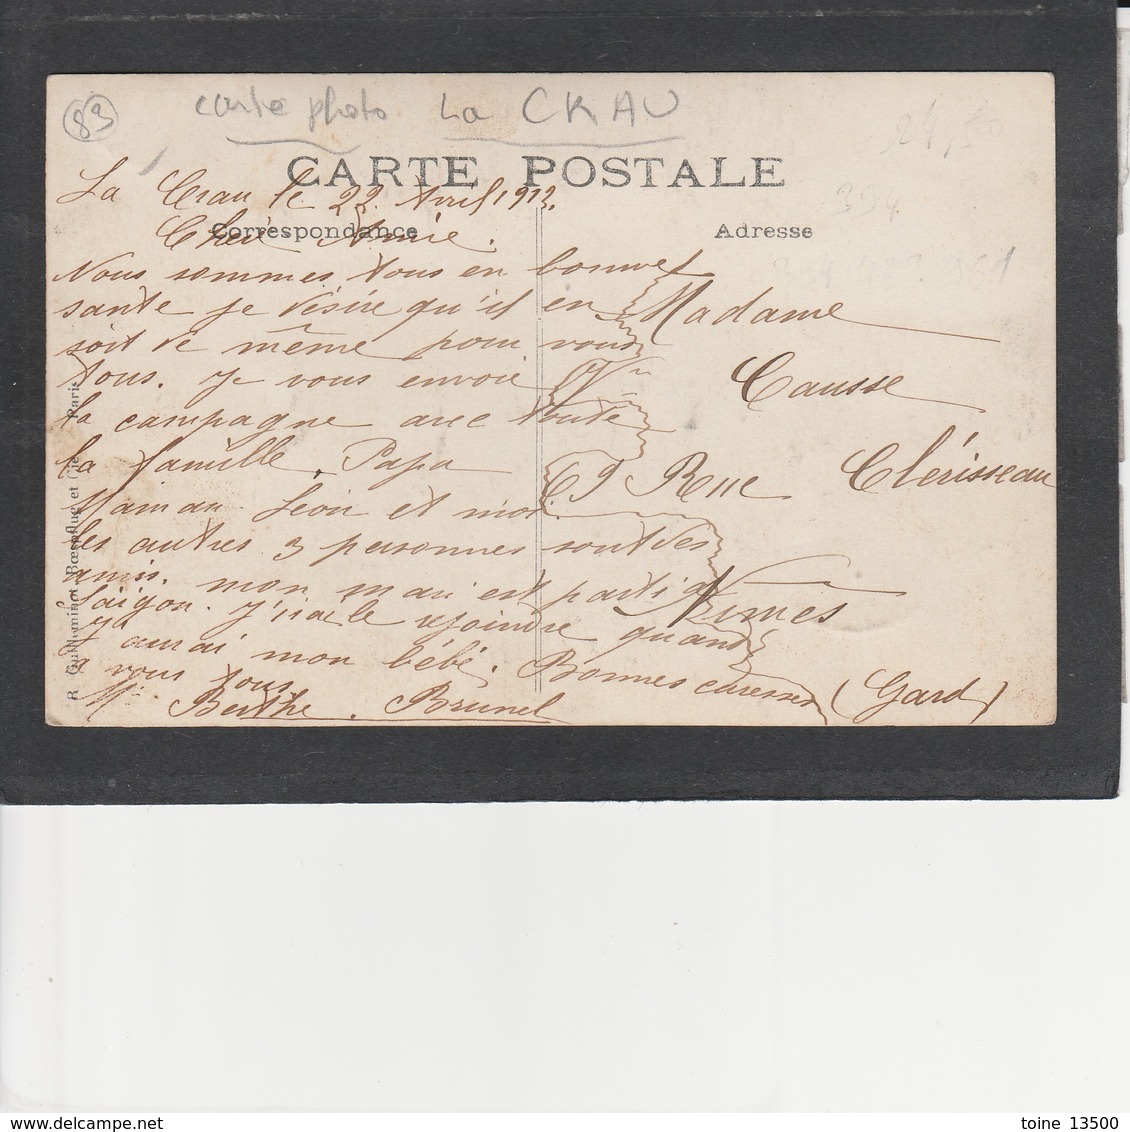 83
carte photo La CRAU
CARTE POSTALE
La Crau le 22 Avril 1913.
Correspondance
Adresse
Chère Amie.
Nous sommes tous en bonne
santé je désire qu'il en
soit de même pour vous
tous. je vous envoie
la campagne avec toute
la famille. Papa
Maman Léon et moi
les autres 3 personnes sont des
amis. mon mari est parti à
Saigon. j'irai le rejoindre quand
j'aurai mon bébé. Bonnes caresses
à vous tous
Berthe. Brunel
Madame
Vve Causse
69 Rue Clérisseau
Nîmes
(Gard)
R. Guilleminot, Bœspflug et Cie Paris
toine 13500